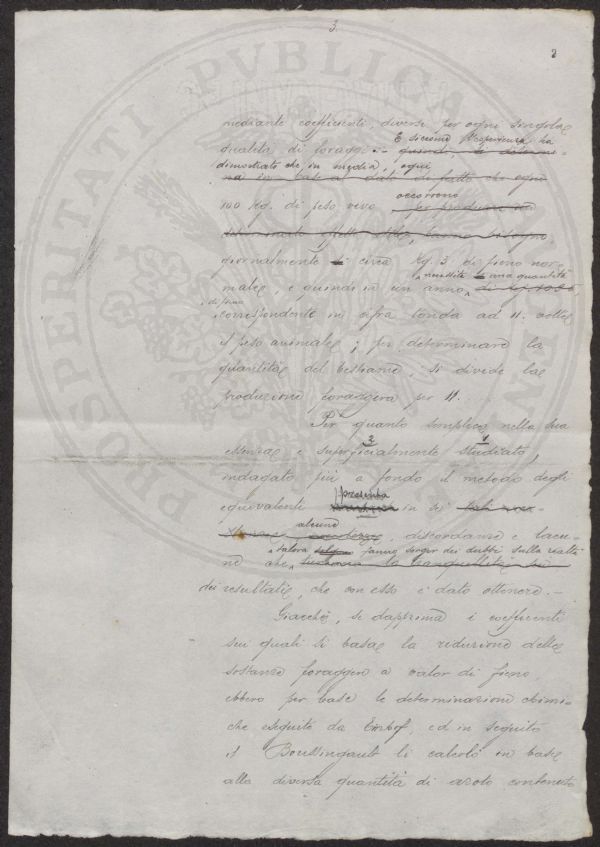 3.
2
PROSPERITATI PVBLICAE
mediante coefficienti, diversi per ogni singola
qualità di foraggi. E siccome l'esperienza ha
dimostrato che, in media, ogni
na in base al dato di fatto che ogni
100 Kg. di peso vivo occorrono
giornalmente di circa Kg. 3 di fieno nor-
male, e quindi in un anno, una quantità
di fieno
corrispondente in cifra tonda ad 11. volte
il peso animale; per determinare la
quantità del bestiame, si divide la
produzione foraggera per 11....
Per quanto semplice nella sua
essenza e superficialmente studiato,
indagato più a fondo il metodo degli
equivalenti presenta in sé
alcune discordanze e lacu-
ne che talora fanno sorger dei dubbi sulla realtà
dei resultati, che con esso è dato ottenere.-
Giacchè, se dapprima i coefficienti
sui quali si basa la riduzione delle
sostanze foraggere a valor di fieno,
ebbero per base le determinazioni chimi-
che eseguite da Einhof, ed in seguito
il Boussingault li calcolò in base
alla diversa quantità di azoto contenuto